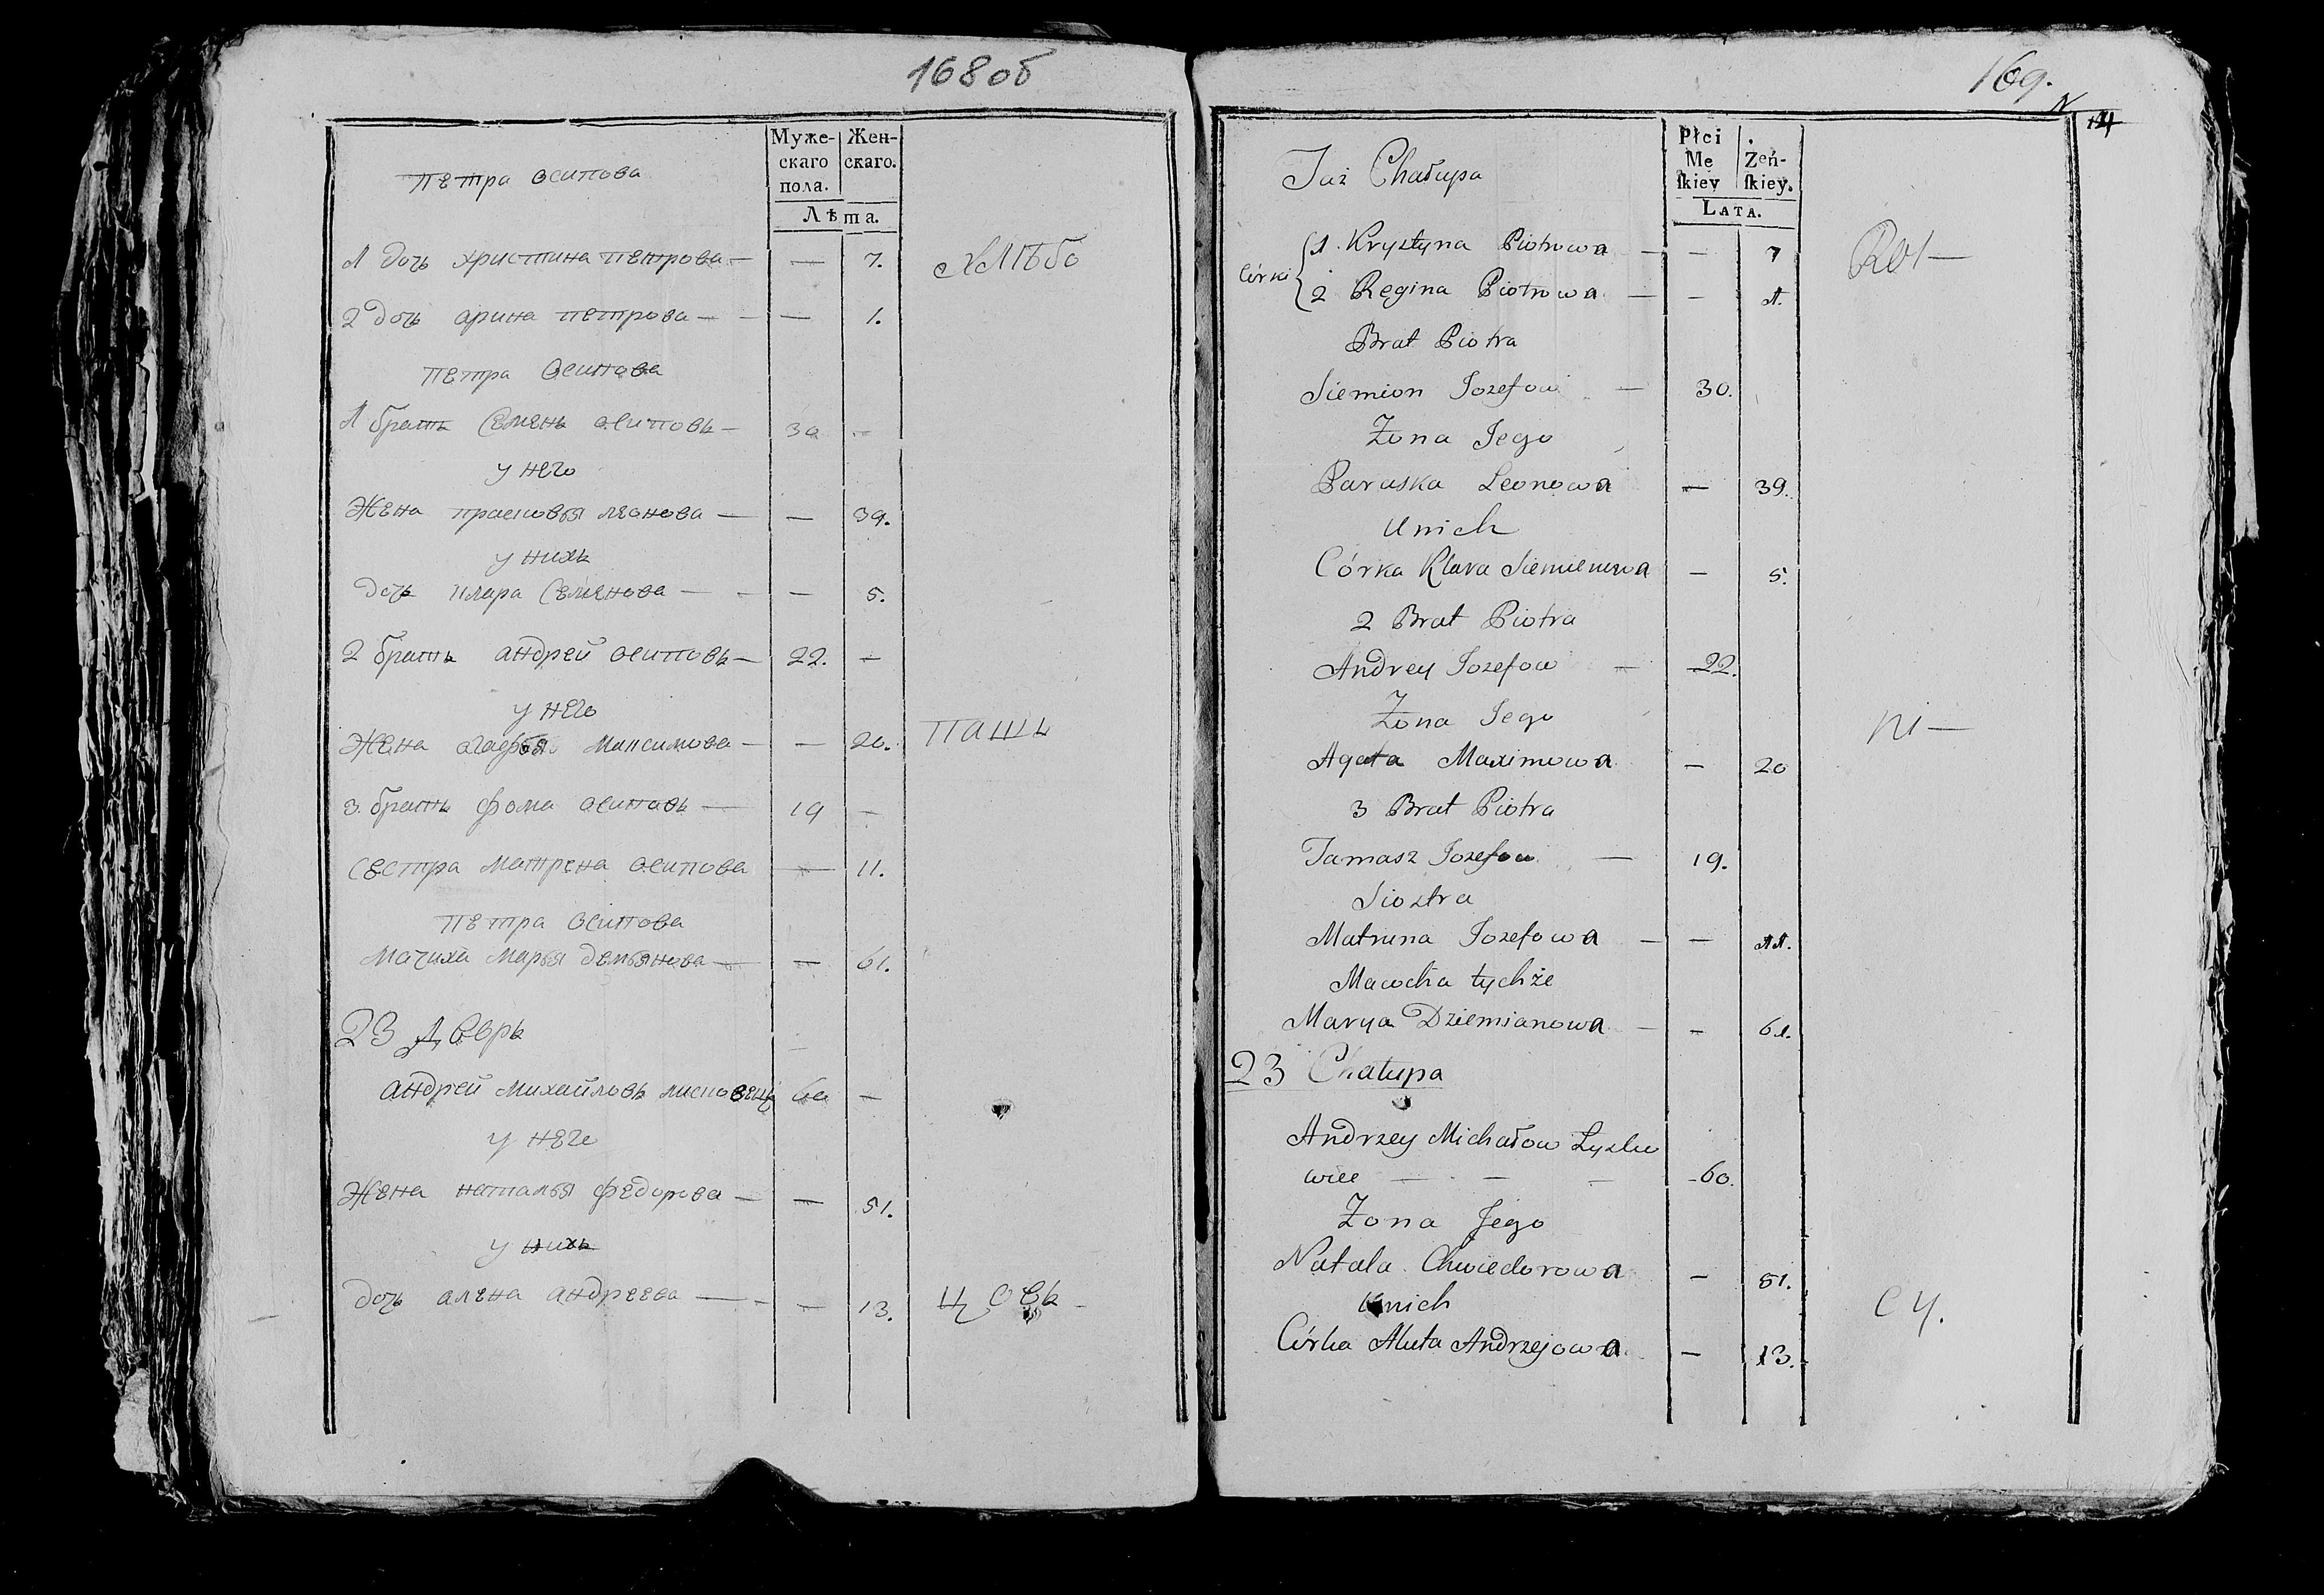 168 об
Муже-
скаго
пола.
Жен-
скаго.
Лѣта.
Петра осипова
1 дочь христина петрова — — 7. хлѣбо
2 дочь арина петрова — — — 1.
Петра Осипова
1 братъ Семенъ осиповъ — 30 —
у него
Жена прасковья леонова — — 39.
у нихъ
дочь клара Семенова — — — 5.
2 братъ андрей осиповъ — 22. —
у него
Жена агафья максимова — — 20. пашъ
3. братъ фома осиповъ — 19 —
Сестра матрена осипова — 11.
Петра осипова
Мачиха марья демьянова — — 61.
23 Дворъ
андрей михайловъ лисковецъ 60 —
у него
Жена наталья федорова — — 51.
у нихъ
дочь алена андреева — — — 13. цовъ —
169.
N
14
Płci
Mę
skiey
Żeń-
skiey.
Lata.
Taż Chałupa
Córki
1. Krystyna Piotrowa — — 7 Rol —
2 Regina Piotrowa — — 1.
Brat Piotra
Siemion Jozefow — 30.
Żona Jego
Paraska Leonowa — 39.
U nich
Córka Klara Siemienowa — 5.
2 Brat Piotra
Andrey Jozefow — 22.
Żona Jego
ni —
Agata Maximowa — 20
3 Brat Piotra
Tamasz Jozefow — 19.
Siostra
Matruna Jozefowa — — 11.
Macocha tychże
Marya Dziemianowa — — 61.
23 Chałupa
Andrzey Michałow Lysko
wiec — — — 60.
Żona Jego
Natala Chwiedorowa — 51.
U nich
cy.
Córka Aluta Andrzejowa — 13.